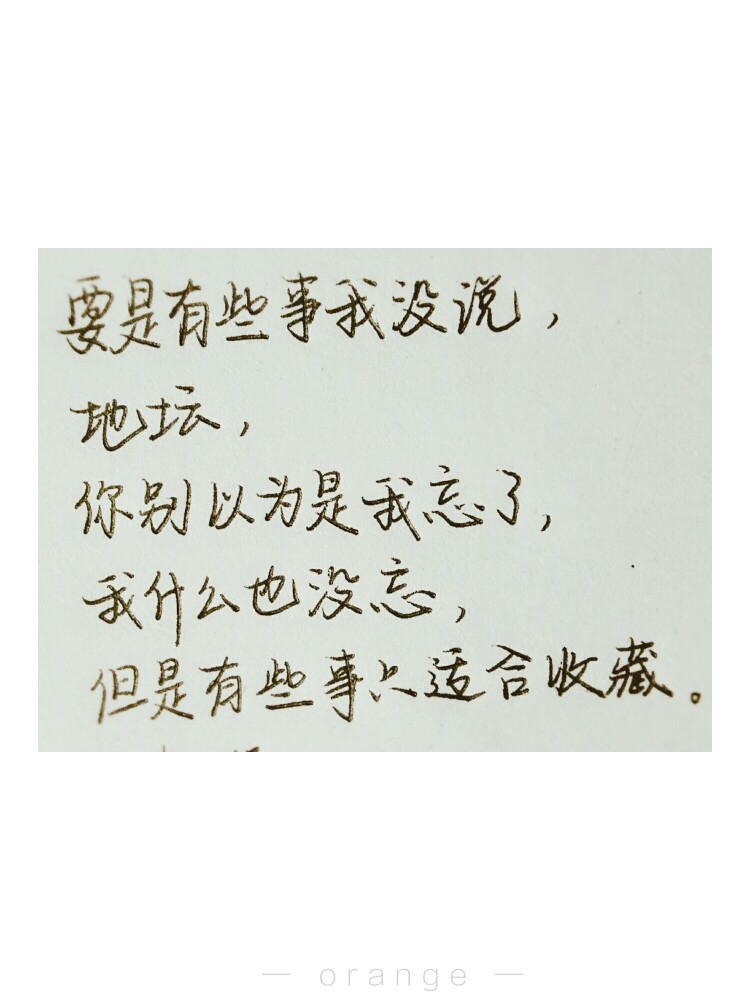 要是有些事我没说，
地坛，
你别以为是我忘了，
我什么也没忘，
但是有些事只适合收藏。
— orange —